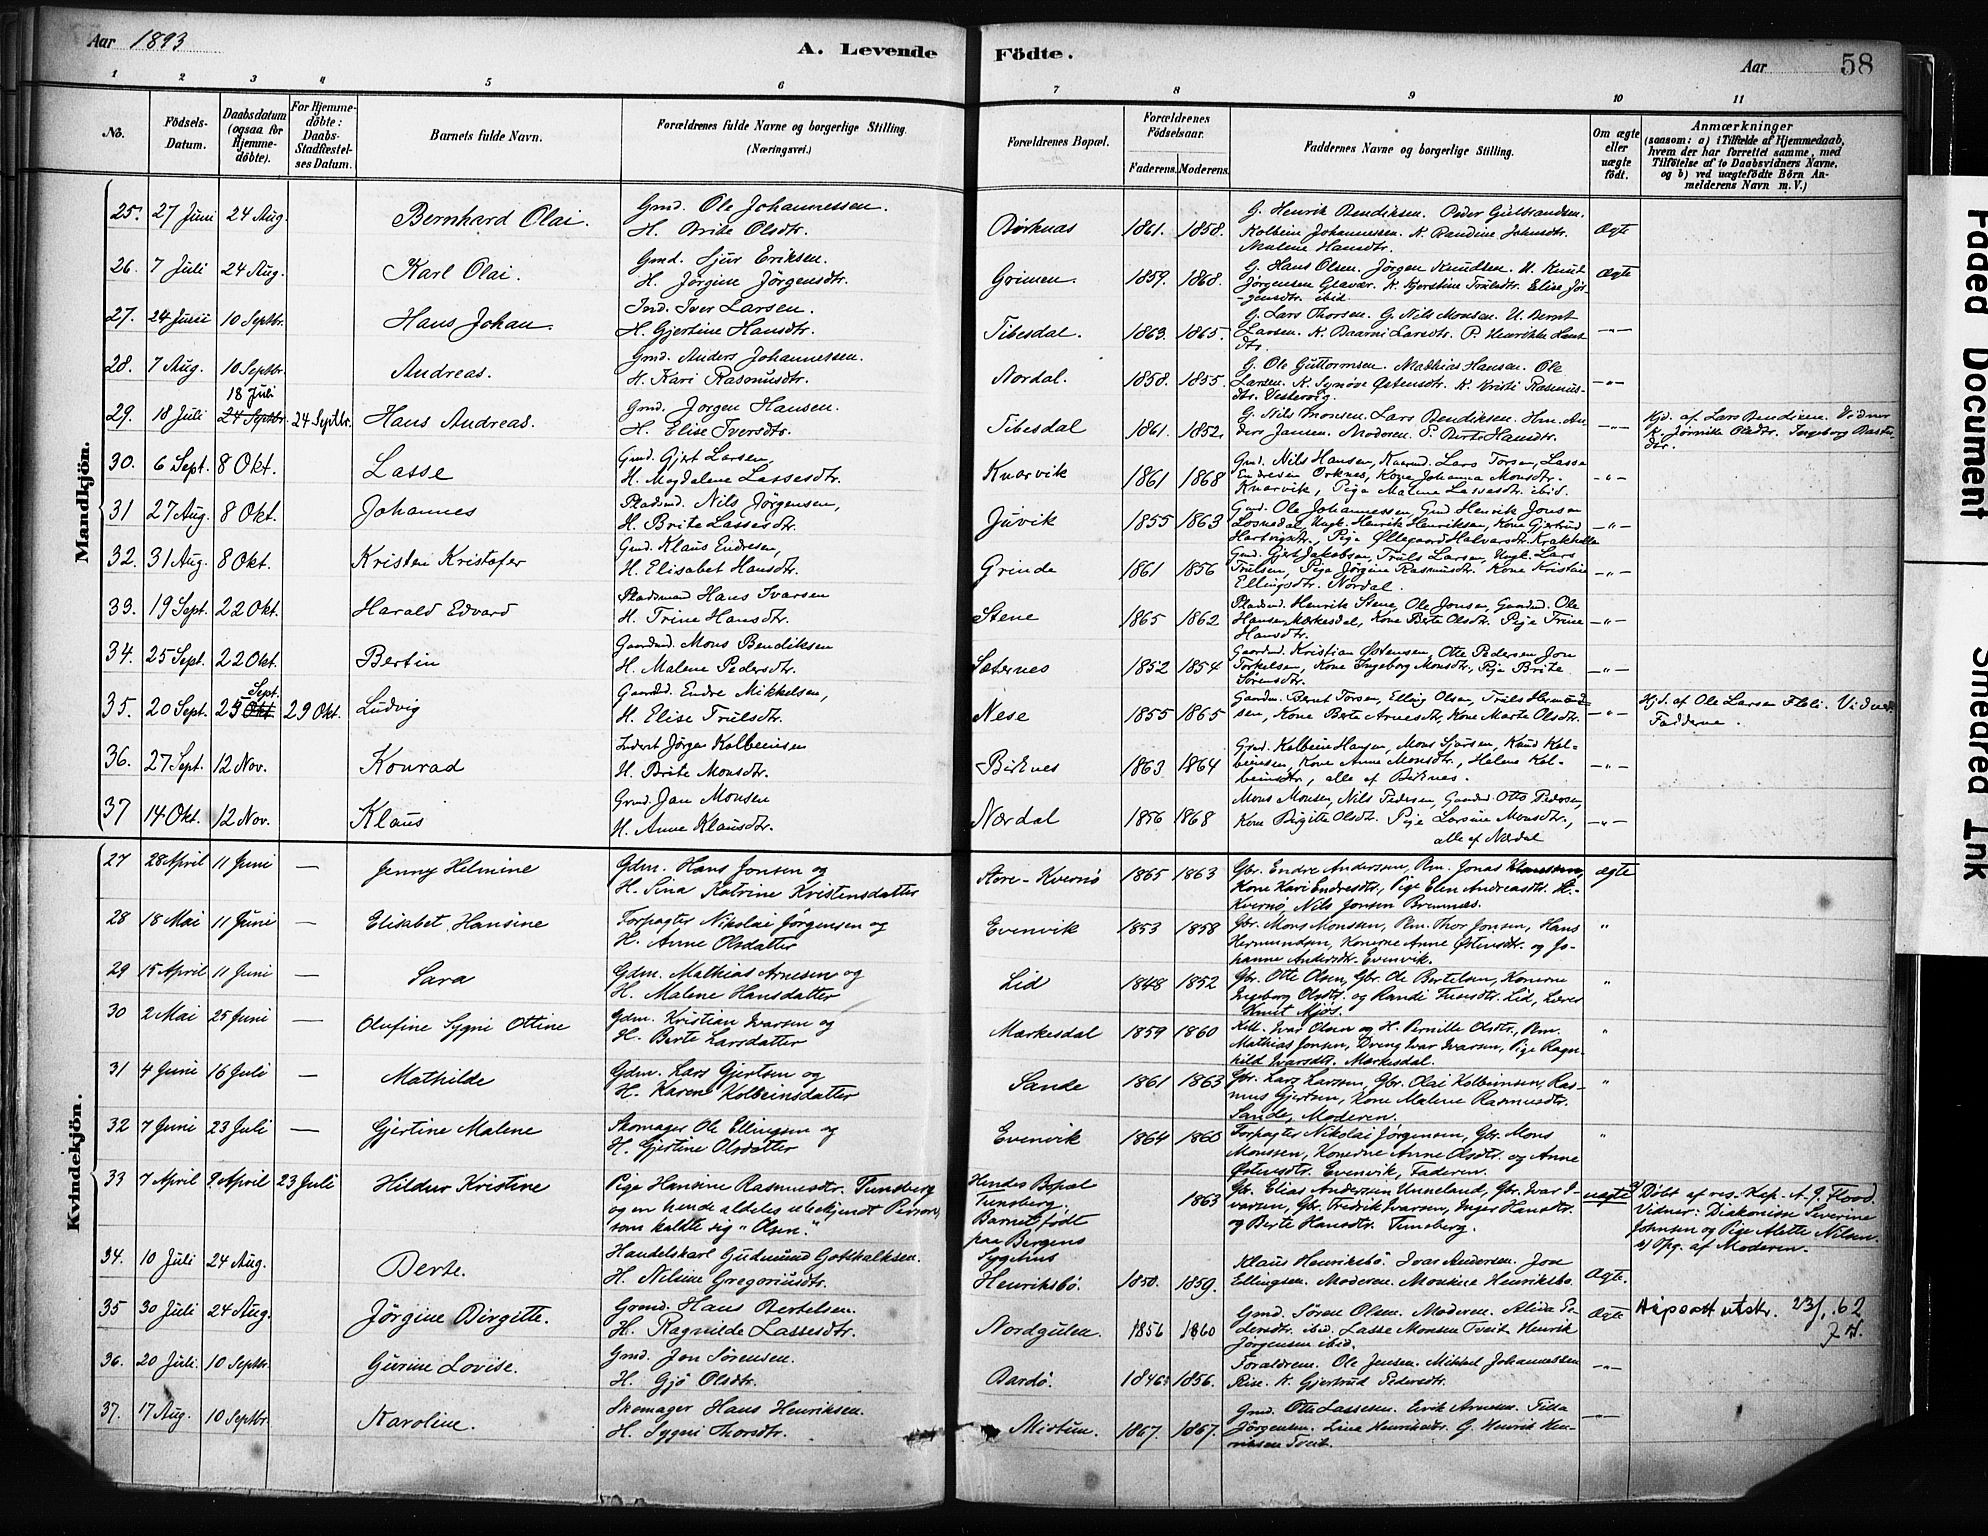 Aar 1893
A. Levende Födte.
Aar
58
1 2 3 4 5 6 7 8 9 10 11
No.
Födsels-Datum.
Daabsdatum (ogsaa for Hjemmedöbte).
For Hjemmedöbte: Daabs-Stadfæstelses Datum.
Barnets fulde Navn.
Forældrenes fulde Navne og borgerlige Stilling. (Næringsvei.)
Forældrenes Bopæl.
Forældrenes Födselsaar.
Faderens. Moderens.
Faddernes Navne og borgerlige Stilling.
Om ægte eller uægte födt.
Anmærkninger
(saasom: a) i Tilfælde af Hjemmedaab, hvem der har forrettet samme, med Tilföielse af to Daabsvidners Navne, og b) ved uægtefödte Börn Anmelderens Navn m. V.)
Mandkjön.
25. 27 Juni 24 Aug. Bernhard Olai. Gmd. Ole Johannessen. H. Brite Olsdtr. 1861. 1858. G. Henrik Bendiksen. Peder Kolbein Johannessen. Malene Hansdtr. Ægte
26. 7 Juli 24 Aug. Karl Olai. Gmd. Sjur Eriksen. H. Jörgine Jörgensdtr. Grimen 1859. 1868. G. Hans Olsen. Jörgen Knudsen. U. Knud Jörgensen Elise Jörgensdtr. ibid Ægte
27. 10 Septbr. Hans Johan. Ind. Iver Larsen. H. Gjertine Hansdtr. Tibesdal 1863. 1865. G. Lars Thorsen. G. Nils Monsen. U. Bernt Larsen. P. Henrikke Hansdtr. —"—
28. 7 Aug. 10 Septbr. Andreas. Gmd. Anders Johannessen. H. Kari Rasmusdtr. Nordal. 1858. 1855. G. Ole Guttormsen. Mathias Hansen. Ole Larsen. K. Synöve K. Kristi Rasmusdtr. —"—
29. 18 Juli 18 Juli 24 Septbr. 24 Septbr. Hans Andreas. Gmd. Jörgen Hansen. H. Elise Iversdtr. Tibesdal 1861. 1852. G. Nils Monsen. Lars Bendiksen. Anders Jansen. Moderen. P. Berte Hansdtr. —"— Hjd. af Lars Bendiksen. Vidner Ingeborg
30. 6 Sept. 8 Okt. Lasse Gmd. Gjert Larsen, H. Magdalene Lassesdtr. Knarvik 1861 1868 Gmd. Nils Hansen, Lars Torsen, Lasse Endresen Orknes, Kone Johanna Monsdtr. Knarvik, Pige Malene Lassesdtr. ibid. —"—
31 27 Aug. 8 Okt. Johannes Pladsmd. Nils Jörgensen, H. Brite Lassesdtr. Juvik 1855 1863 Gmd. Ole Johannessen, Gmd Henrik Jonsen Losnedal, Ungk. Henrik Henriksen, Kone Gjertrud Hartvigsdtr., Pige Øllegaard Halvorsdtr. Krakhella —"—
32. 31 Aug. 8 Okt. Kristen Kristofer Gmd. Klaus Endresen, H. Elisabet Hansdtr. Grinde 1861 1856 Gmd. Gjert Jakobsen, Truls Larsen, Ungk. Lars Trulsen, Pige Jörgine Rasmusdtr. Kone Kristine Ellingsdtr. Nordal. —"—
33. 19 Sept. 22 Okt. Harald Edvard Pladsmand Hans Ivarsen H. Trine Hansdtr. Stene 1865 1862 Pladsmd. Henrik Stene, Ole Jonsen, Gaardmd. Ole Hansen Mærkesdal, Kone Berte Olsdtr. Pige Trine Hansdtr. —"—
34. 25 Sept. 22 Okt. Bertin Gaardmd Mons Bendiksen H. Malene Pedersdtr. Sæternes 1852 1854 Gaardmd. Kristian Østensen, Otte Pedersen, Jon Torkelsen, Kone Ingeborg Monsdtr., Pige Brite Sörensdtr. —"—
35. 20 Sept. 25 Okt Sept. 29 Okt. Ludvig Gaardmd. Endre Mikkelsen, H. Elise Trulsdtr. Nese 1855 1865 Gaardm. Bernt Torsen, Elling Olsen, Truls Hermundsen, Kone Berte Arnesdtr, Kone Marte Olsdtr. —"— Hjd. af Ole Larsen Floli. Vidner Fadderne.
36. 27 Sept. 12 Nov. Konrad Inderst Jörgen Kolbeinsen H. Brite Monsdtr. Birknes 1863 1864 Gmd. Kolbein Hansen, Mons Sjursen, Knud Kolbeinsen, Kone Anne Monsdtr., Helene Kolbeinsdtr, alle af Birknes. —"—
37 14 Okt. 12 Nov. Klaus Gmd. Jan Monsen H. Anne Klausdtr. Nordal 1856 1868 Mons Monsen, Nils Pedersen, Gaardmd. Otto Pedersen, Kone Birgitte Olsdtr. Pige Larsine Monsdtr., alle af Nordal —"—
Kvindekjön.
27 28 April 11 Juni — Jenny Helmine Gdm. Hans Jonsen og H. Sina Katrine Kristensdatter Store-Kvernö 1865 1863 Gbr. Endre Andersen, Pm. Jonas Kone Kari Endresdtr, Pige Elen Andreasdtr. St. Kvernö, Nils Jonsen Bremnæs. ægte
28 18 Mai 11 Juni — Elisabet Hansine Forpagter Nikolai Jörgensen og H. Anne Olsdatter Evenvik 1853 1858 Gbr. Mons Monssen, Pm. Thor Jonsen, Hans Hermundsen, Konerne Anne Østensdtr. og Johanne Andersdtr. Evenvik. "
29 15 April 11 Juni — Sara Gdm. Mathias Arnesen og H. Malene Hansdatter Lid 1848 1852 Gbr. Otte Olsen, Gbr. Ole Bertelsen, Konerne Ingeborg Olsdtr. og Randi Lid, Lærer Knut Mjös. "
30 2 Mai 25 Juni — Olufine Sygni Ottine Gdm. Kristian Ivarsen og H. Berte Larsdatter Mærkesdal 1859 1860 Kell. Ivar Olsen og H. Pernille Olsdtr., Pm. Mathias Jonsen, Dreng Ivar Ivarsen, Pige Ragnhild Ivarsdtr. Mærkesdal. "
31 4 Juni 16 Juli — Mathilde Gdm. Lars Gjertsen og H. Karen Kolbeinsdatter Sande 1861 1863 Gbr. Lars Larsen, Gbr. Olai Kolbeinsen, Rasmus Gjertsen, Kone Malene Rasmusdtr. Sande, Moderen. "
32 7 Juni 23 Juli — Gjertine Malene Skomager Ole Ellingsen og H. Gjertine Olsdatter Evenvik 1864 1860 Forpagter Nikolai Jörgensen, Gbr. Mons Monssen, Konerne Anne Olsdtr. og Anne Østensdtr. Evenvik, Faderen. "
33 7 April 9 April 23 Juli Hildur Kristine Pige Hansine Rasmusdtr. Tunsberg og en hende aldeles ubekjendt Person, som kaldte sig "Olsen". Hendes Bopæl Tunsberg, Barnet födt paa Bergens Sygehus 1863 Gbr. Elias Andersen Unneland, Gbr. Ivar Ivarsen, Gbr. Fredrik Ivarsen, Inger Hansdtr. og Berte Hansdtr. Tunsberg. uægte a) Döbt af res. Kap. A. J. Flood. Vidner: Diakonisse Severine Johnsen og Pige Alette Nilsen. b) Opg. af Moderen.
34. 10 Juli 24 Aug. Berte. Handelskarl Gudmund Gotskalksen. H. Nilsine Gregoriusdtr. Henriksbö. 1850. 1859. Klaus Henriksbö. Ivar Andersen. Jon Ellingsen. Moderen. Monsine Henriksbö. Ægte.
35 30 Juli 24 Aug. Jörgine Birgitte. Grmd. Hans Bertelsen. H. Ragnilde Lassesdtr. Nordgulen. 1856 1860 Gmd. Sören Olsen. Moderen. Alida Pedersdtr. ibid. Lasse Monsen Tveit. Henrik Jörgensen ibid. Ægte utskr. 23/1.62
36. 20 Juli. 10 Septbr. Gurine Lovise. Gmd. Jon Sörensen. H. Gjö Olsdtr. Bardö. 1846. 1856. Forældrene. Ole Jensen. Mikkel Johannessen Rise. K. Gjertrud Pedersdtr. —"—
37. 17 Aug. 10 Septbr. Karoline. Skomager Hans Henriksen. H. Sygni Thorsdtr. Mistun. 1867. 1867. Gmd. Otte Lassesen. Erik Arnesen. Jörgensen. Lina Henriksdtr. G. Henrik Henriksen Tveit. —"—
Faded Document
Smeared Ink